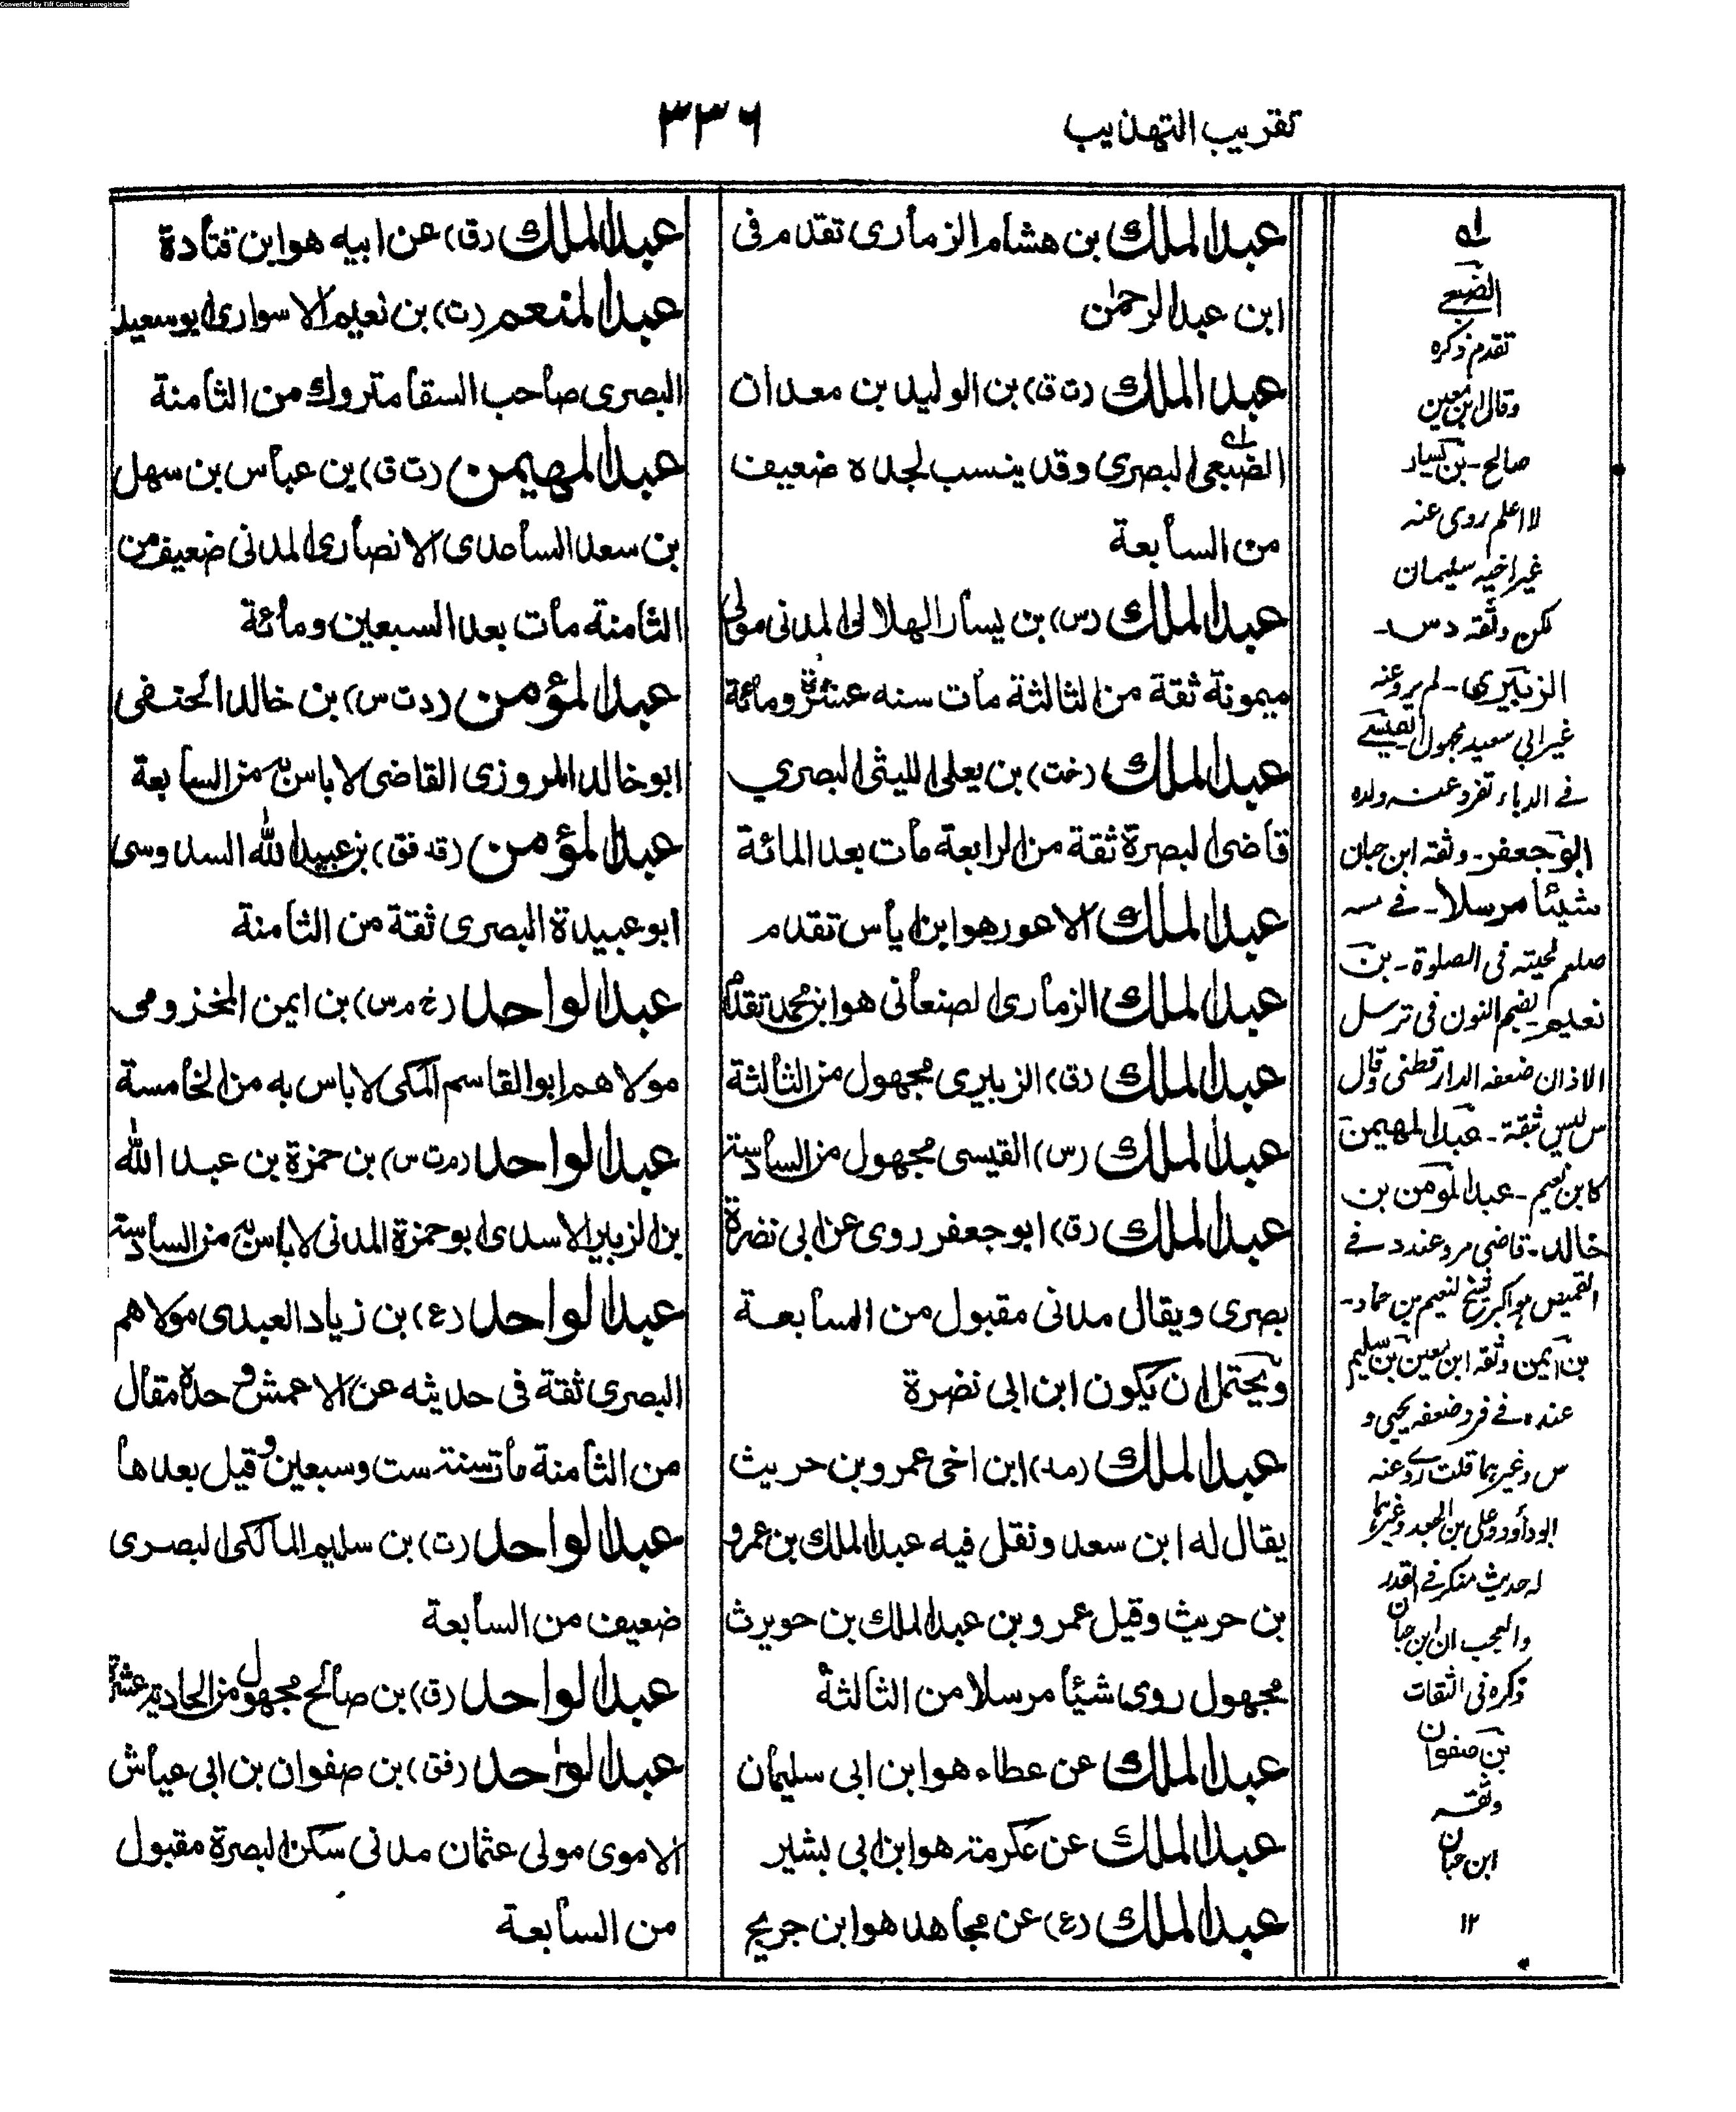 Converted by Tiff Combine - unregistered
تقريب التهذيب
٣٣٦
عبد الملك بن هشام الزماري تقدم في
ابن عبد الرحمٰن
عبد الملك (ت ق) بن الوليد بن معدان
الضبعي البصري وقد ينسب لجده ضعيف
من السابعة
عبد الملك (س) بن يسار الهلالي المدني مولى
ميمونة ثقة من الثالثة مات سنه عشرة ومائة
عبد الملك (خت) بن يعلى الليثي البصري
قاضي البصرة ثقة من الرابعة مات بعد المائة
عبد الملك الاعور هو ابن اياس تقدم
عبد الملك الزماري الصنعاني هو ابن محمد تقدم
عبد الملك (ق) الزبيري مجهول من الثالثة
عبد الملك (س) القيسي مجهول من السادسة
عبد الملك (ق) ابو جعفر روى عن ابي نضرة
بصري ويقال مدني مقبول من السابعة
ويحتمل ان يكون ابن ابي نضرة
عبد الملك (مد) ابن اخي عمرو بن حريث
يقال له ابن سعد ونقل فيه عبد الملك بن عمرو
بن حريث وقيل عمرو بن عبد الملك بن حويرث
مجهول روى شيئا مرسلا من الثالثة
عبد الملك عن عطاء هو ابن ابي سليمان
عبد الملك عن عكرمة هو ابن ابي بشير
عبد الملك (ع) عن مجاهد هو ابن جريج
عبد الملك (ق) عن ابيه هو ابن قتادة
عبد المنعم (ت) بن نعيم الاسواري ابو سعيد
البصري صاحب السقا متروك من الثامنة
عبد المهيمن (ت ق) بن عباس بن سهل
بن سعد الساعدي الانصاري المدني ضعيف من
الثامنة مات بعد السبعين ومائة
عبد المؤمن (د ت س) بن خالد الحنفي
ابو خالد المروزي القاضي لا باس به من السابعة
عبد المؤمن (قد فق) بن عبيد الله السدوسي
ابو عبيدة البصري ثقة من الثامنة
عبد الواحد (خ م س) بن ايمن المخزومي
مولاهم ابو القاسم المكي لا باس به من الخامسة
عبد الواحد (م ت س) بن حمزة بن عبد الله
بن الزبير الاسدي ابو حمزة المدني لا باس به من السادسة
عبد الواحد (ع) بن زياد العبدي مولاهم
البصري ثقة في حديثه عن الاعمش وحده مقال
من الثامنة مات سنة ست وسبعين وقيل بعدها
عبد الواحد (ت) بن سليم المالكي البصري
ضعيف من السابعة
عبد الواحد (ق) بن صالح مجهول من الحادية عشرة
عبد الواحد (فق) بن صفوان بن ابي عياش
الاموي مولى عثمان مدني سكن البصرة مقبول
من السابعة
الضبعے
تقدم ذكره
وقال ابن معين
صالح - بن يسار
لا اعلم روى عنه
غير اخيه سليمان
لكن وثقه د س -
الزبيري - لم يرو عنه
غير ابي سعيد مجهول القيسے
فے الدباء تفرد عنه ولده
ابو جعفر - وثقه ابن حبان
شيئا مرسلا - فے مسه
صلعم لحيته فى الصلوة - بن
نعيم - بضم النون فى ترسل
الاذان ضعفه الدارقطنى وقال
س ليس ثقة - عبد المهيمن
كابن نعيم - عبد المومن بن
خالد - قاضى مرو عند د فے
القميص هو اكبر شيخ لنعيم بن حماد -
بن ايمن وثقه ابن معين بن سليم
عنده فے فرد ضعفه يحيى و
س وغيرهما قلت روى عنه
ابو داؤد وعلى بن الجعد وغيرهما
له حديث منكر فے القدر
والعجب ان ابن حبان
ذكره فى الثقات
بن صفوان
وثقه
ابن حبان
١٢